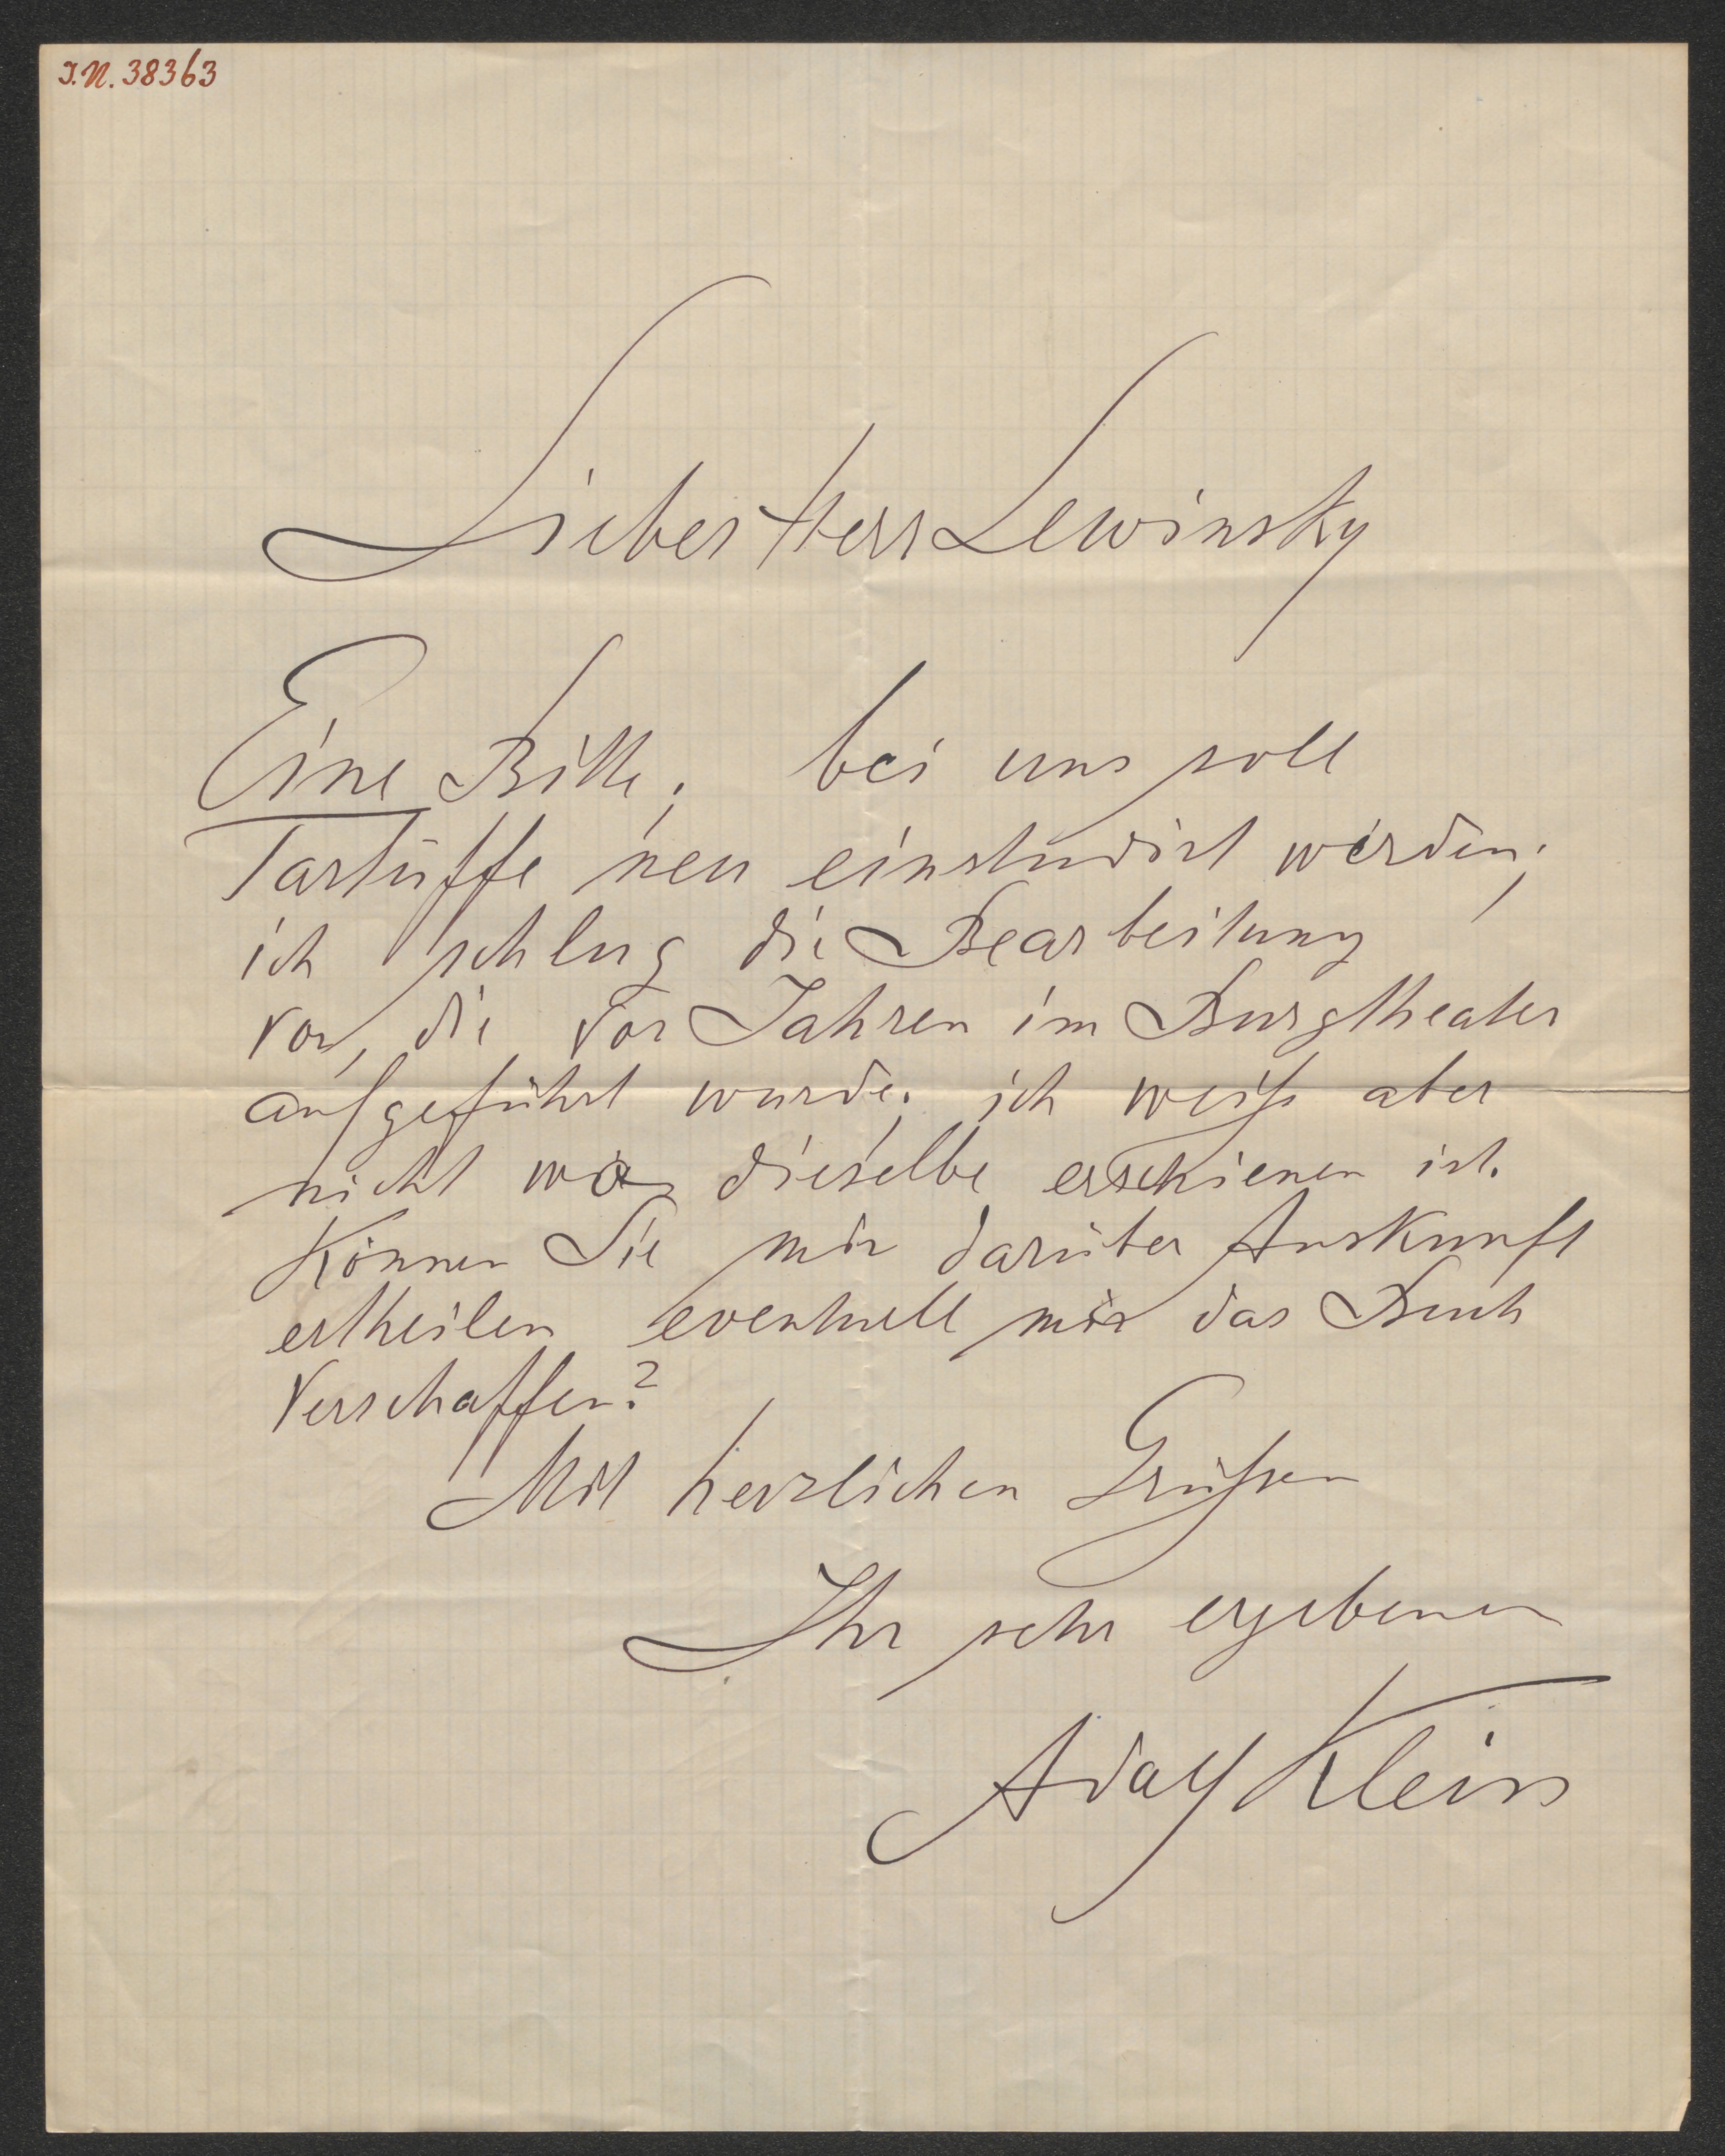 I.N. 38363
Lieber Herr Lewinsky
Eine Bitte; bei uns soll
Tartüffe neu einstudirt werden;
ich schlug die Bearbeitung
vor, die vor Jahren im Burgtheater
aufgeführt wurde; ich weiß aber
nicht wo dieselbe erschienen ist.
Können Sie mir darüber Auskunft
ertheilen eventuell mir das Buch
verschaffen?
Mit herzlichen Grüßen
Ihr sehr ergebener
Adolf Klein